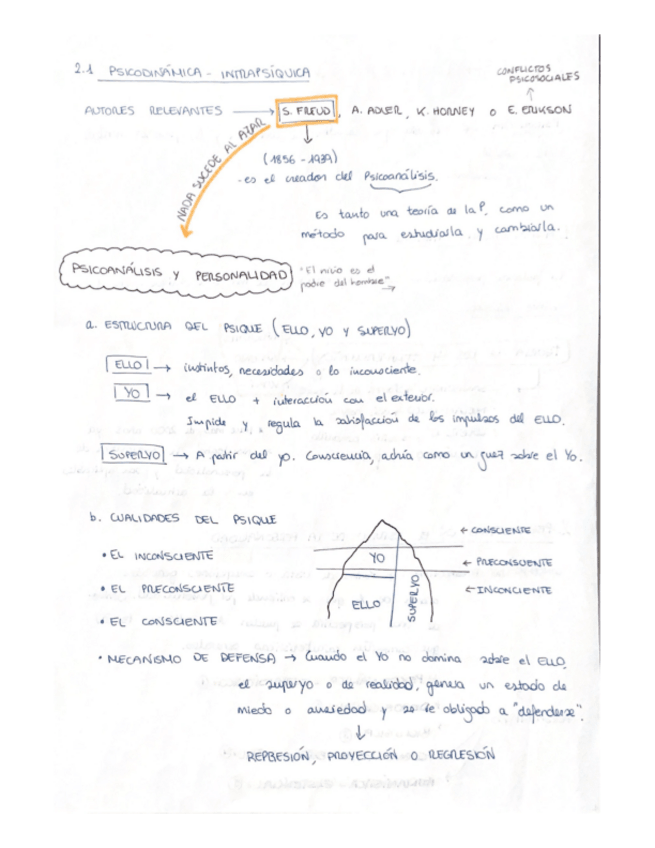 2.1 PSICODINÁMICA - INTRAPSÍQUICA
CONFLICTOS
PSICOSOCIALES
AUTORES RELEVANTES → S. FREUD, A. ADLER, K. HORNEY o E. ERIKSON
NADA SUCEDE AL AZAR
(1856 - 1939)
- es el creador del Psicoanálisis.
Es tanto una teoría de la P. como un
método para estudiarla y cambiarla.
PSICOANÁLISIS Y PERSONALIDAD
"El niño es el
padre del hombre" →
a. ESTRUCTURA DEL PSIQUE (ELLO, YO Y SUPERYO)
ELLO → instintos, necesidades o lo inconsciente.
YO → el ELLO + interacción con el exterior.
Impide y regula la satisfacción de los impulsos del ELLO.
SUPERYO → A partir del yo. Consciencia, actúa como un juez sobre el Yo.
b. CUALIDADES DEL PSIQUE
← CONSCIENTE
• EL INCONSCIENTE
YO
← PRECONSCIENTE
• EL PRECONSCIENTE
← INCONCIENTE
ELLO
SUPERYO
• EL CONSCIENTE
• MECANISMO DE DEFENSA → Cuando el Yo no domina sobre el ELLO,
el superyo o de realidad, genera un estado de
miedo o ansiedad y se ve obligado a "defenderse".
↓
REPRESIÓN, PROYECCIÓN O REGRESIÓN